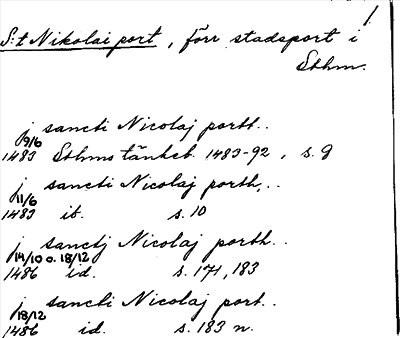 1
S:t Nikolai port, förr stadsport i
Sthm.
j sancti Nicolaj portt..
9/6
1483 Sthms tänkeb. 1483-92, s. 9
j sancti Nicolaj porth,..
11/6
1483 ib. s. 10
j sanctj Nicolaj porth..
14/10 o. 18/12
1486 id. s. 171, 183
j sancti Nicolaj port..
18/12
1486 id. s. 183 n.